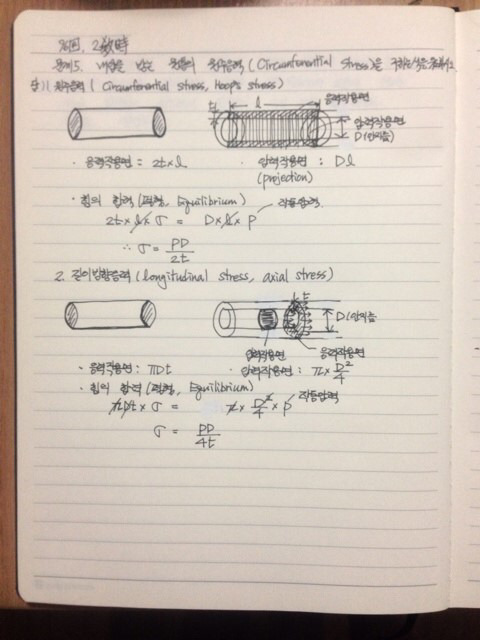 문제5. 내압을 받는 원통의 원주응력(Circumferential Stress)을 구하는 식을 쓰시오.
답) 1. 원주응력 (Circumferential stress, Hoop stress)
t
l
응력작용면
압력작용면
D(안지름)
· 응력작용면 = 2t×l
· 압력작용면 : Dl
(projection)
· 힘의 합력 (평형, Equilibrium)
2t×l×σ = D×l×P
작동압력
∴ σ = PD/2t
2. 길이방향응력 (longitudinal stress, axial stress)
t
D(안지름)
압력작용면
응력작용면
· 응력작용면 : πDt
· 압력작용면 : π×D²/4
· 힘의 합력 (평형, Equilibrium)
πDt×σ = π×D²/4×P
작동압력
σ = PD/4t